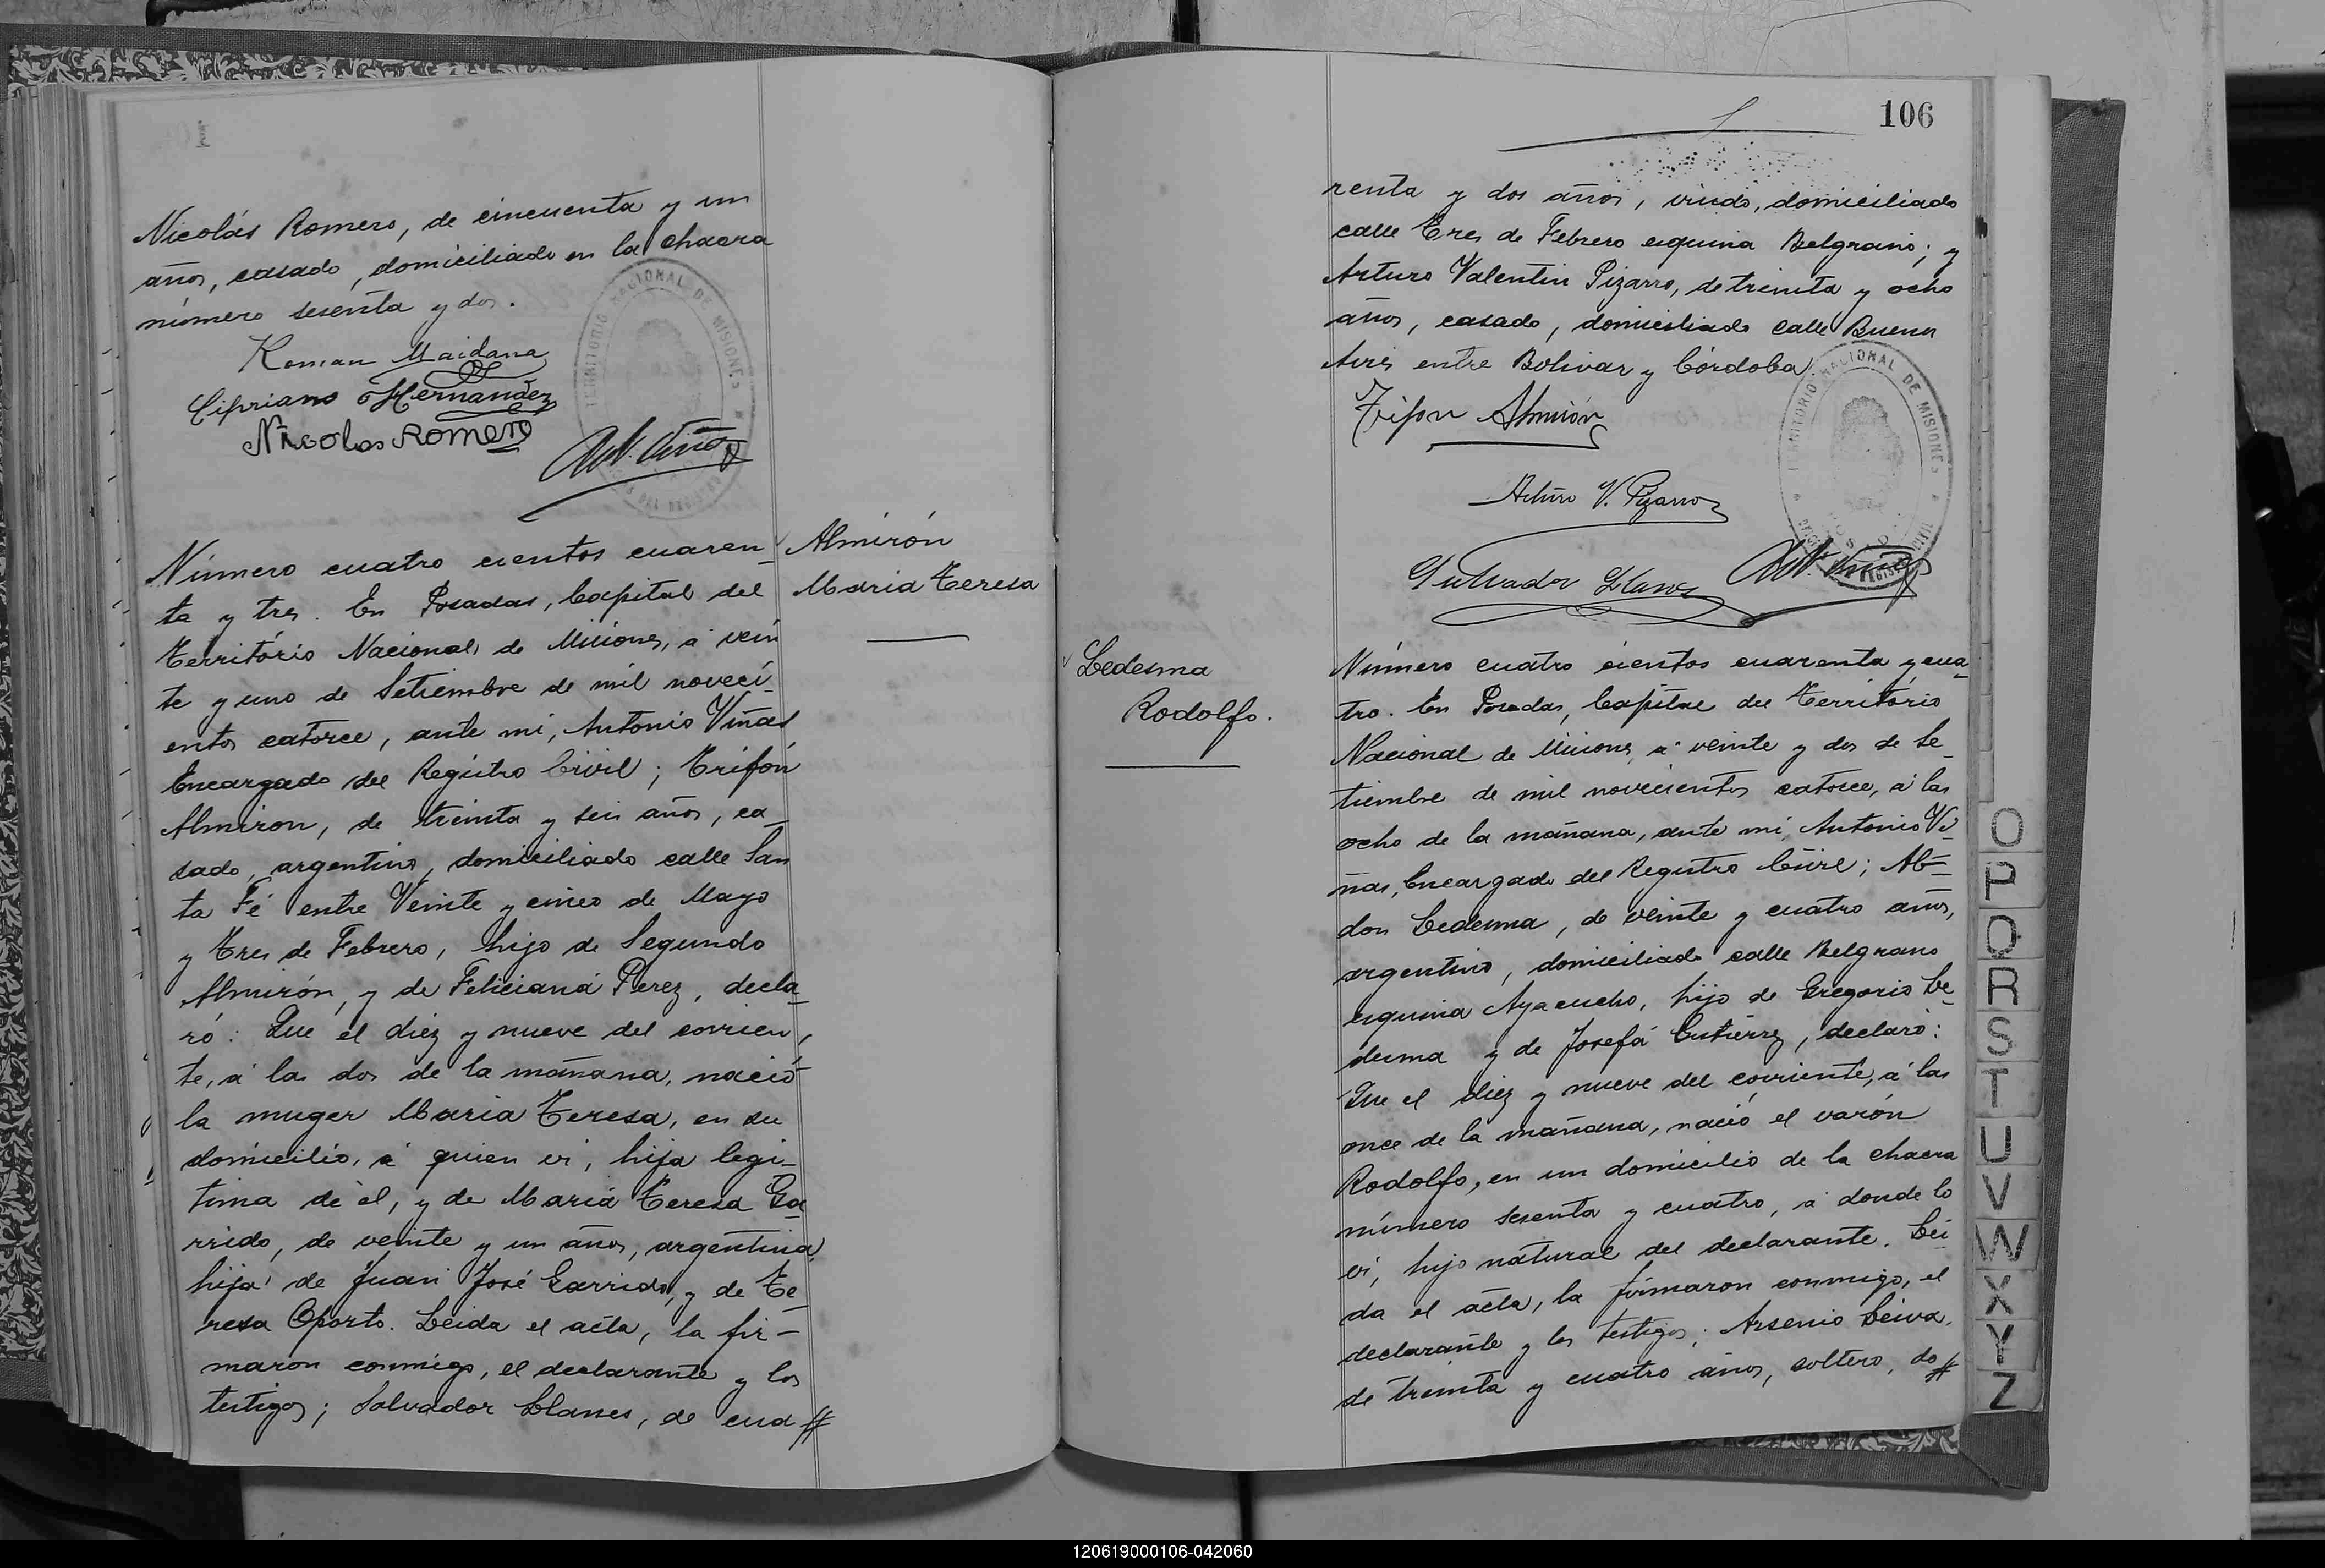 Nicolás Romero, de cincuenta y un
años, casado, domiciliado en la chacra
número sesenta y dos.
Roman Maidana
Cipriano Hernandez
Nicolas Romero
Ant. Viñas
TERRITORIO NACIONAL DE MISIONES
Número cuatro cientos cuaren-
ta y tres. En Posadas, Capital del
Território Nacional de Misiones, á vein
te y uno de Setiembre de mil noveci-
entos catorce, ante mi, Antonio Viñas
Encargado del Registro Civil; Trifón
Almiron, de treinta y seis años, ca-
sado, argentino, domiciliado calle San
ta Fé entre Veinte y cinco de Mayo
y Tres de Febrero, hijo de Segundo
Almirón, y de Feliciana Perez, decla-
ró: Que el diez y nueve del corrien-
te, á las dos de la mañana, nació
la muger Maria Teresa, en su
domicilio, á quien vi, hija legi-
tima de él, y de Maria Teresa Ga-
rrido, de veinte y un años, argentina,
hija de Juan José Garrido, y de Te-
resa Oporto. Leida el acta, la fir-
maron conmigo, el declarante y los
testigos; Salvador Llanes, de cua #
Almirón
Maria Teresa
106
renta y dos años, viudo, domiciliado
calle Tres de Febrero esquina Belgrano; y
Arturo Valentin Pizarro, de treinta y ocho
años, casado, domiciliado calle Buenos
Aires entre Bolivar y Córdoba.
Trifon Almirón
Arturo V. Pizarro
Salvador Llanes
Ant. Viñas
TERRITORIO NACIONAL DE MISIONES
Ledesma
Rodolfo.
Número cuatro cientos cuarenta y cua-
tro. En Posadas, Capital del Território
Nacional de Misiones, á veinte y dos de Se-
tiembre de mil novecientos catorce, á las
ocho de la mañana, ante mi, Antonio Vi-
ñas, Encargado del Registro Civil; Ab-
don Ledesma, de veinte y cuatro años,
argentino, domiciliado calle Belgrano
esquina Ayacucho, hijo de Gregorio Le-
desma y de Josefa Gutierrez, declaró:
Que el diez y nueve del corriente, á las
once de la mañana, nació el varón
Rodolfo, en un domicilio de la chacra
número sesenta y cuatro, á donde lo
vi, hijo natural del declarante. Lei-
da el acta, la firmaron conmigo, el
declarante y los testigos; Arsenio Leiva,
de treinta y cuatro años, soltero, do #
O
P
Q
R
S
T
U
V
W
X
Y
Z
120619000106-042060